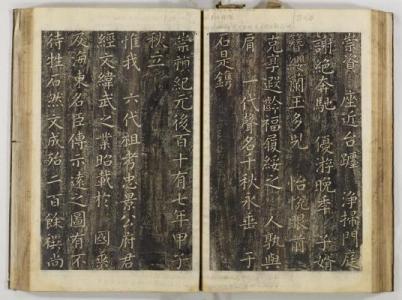 崇資 座近台躔 淨掃門庭
謝絶奔馳 優游晚季 子婿
簪纓蘭玉多 怡悅眼前
克享遐齡福履綏之 人孰與
肩 一代聲名千秋永垂 于
石是鐫
崇禎紀元後百十有七年甲子
秋立
惟我 六代祖考忠景公府君
經文緯武之業昭載於 國乘
及海東名臣傳示遠之圖有不
待牲石然文成殆二百餘禩尚